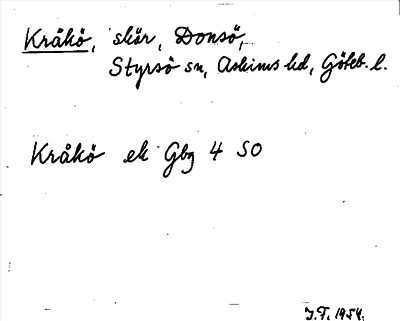 Kråkö, skär, Donsö,
Styrsö sn, Askims hd, Göteb. l.
Kråkö ek Gbg 4 SO
J.T. 1954.